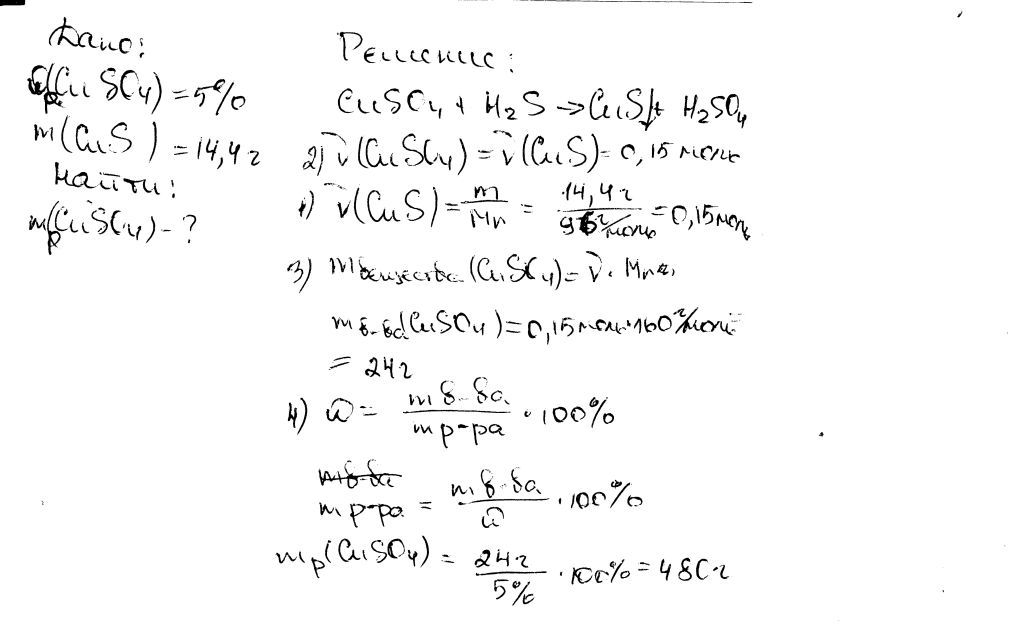 Дано:
ω р (CuSO4) = 5%
m(CuS) = 14,4 г
Найти:
mр(CuSO4) - ?
Решение:
CuSO4 + H2S → CuS↓ + H2SO4
2) ν(CuSO4) = ν(CuS) = 0,15 моль
1) ν(CuS) = m/Mr = 14,4 г/96 г/моль = 0,15 моль
3) m вещества (CuSO4) = ν · Mr
m в-ва(CuSO4) = 0,15 моль · 160 г/моль =
= 24 г
4) ω = m в-ва/m р-ра · 100%
m в-ва
m р-ра = m в-ва/ω · 100%
mр(CuSO4) = 24 г/5% · 100% = 480 г